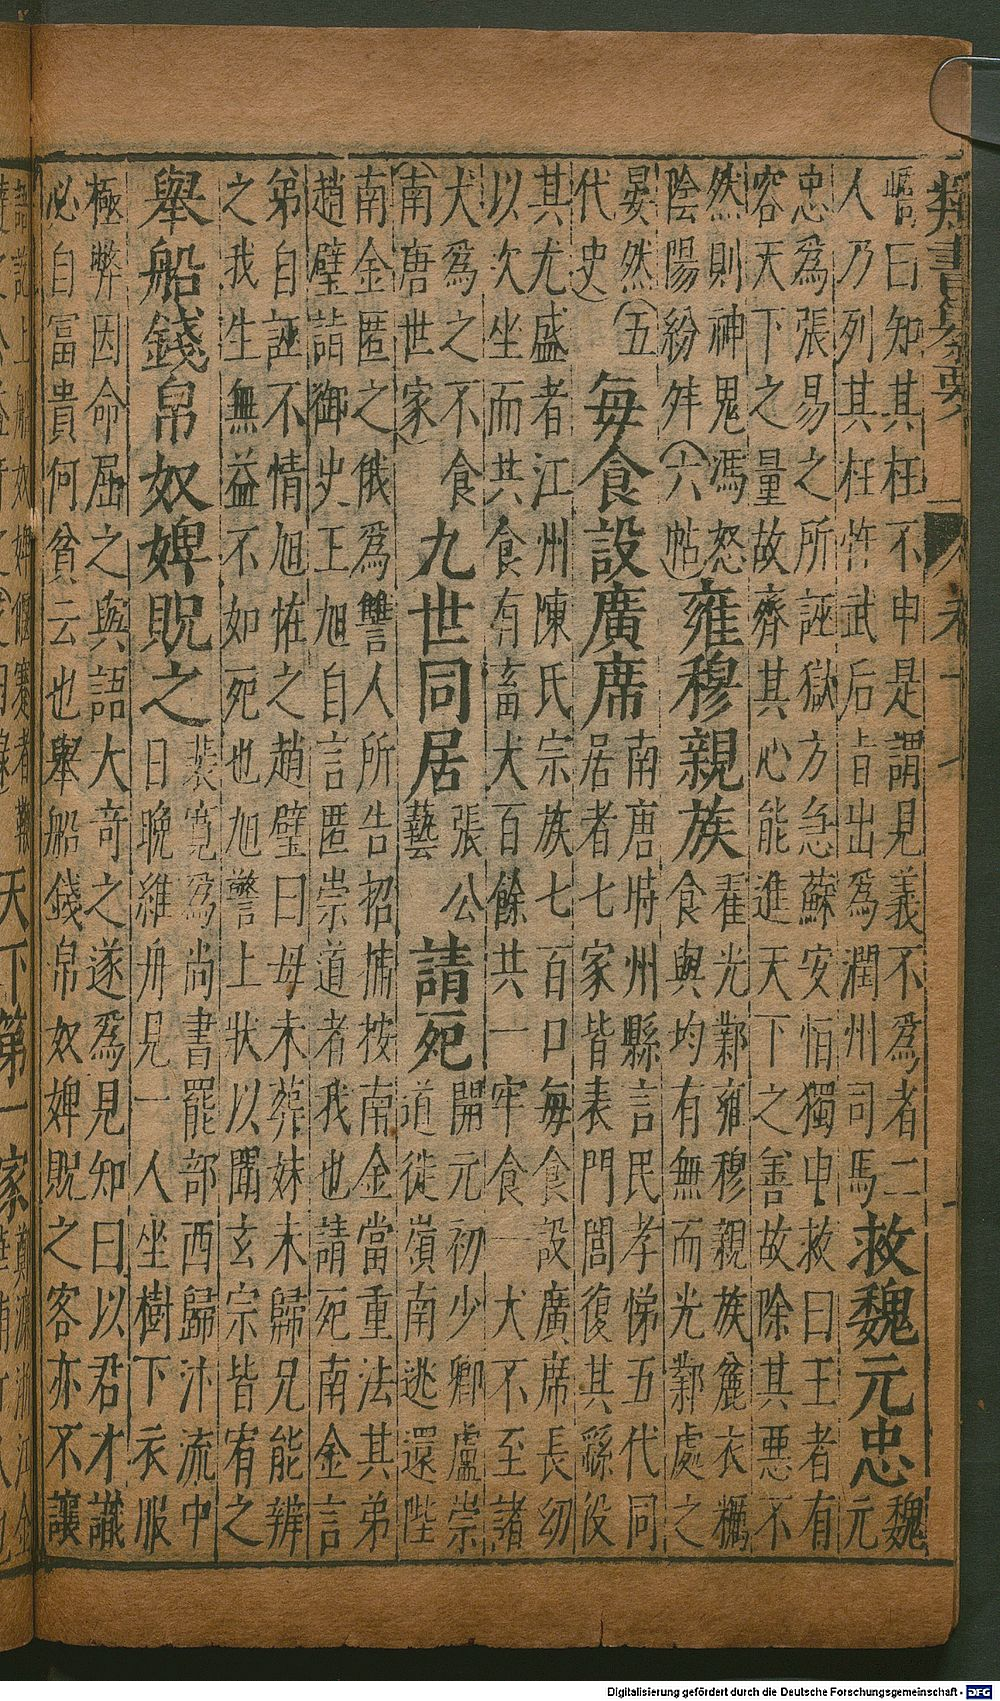 類書纂要
曰知其枉不申是謂見義不為者二
人乃列其枉忤武后旨出為潤州司馬
救魏元忠
魏
元
忠為張易之所誣獄方急蘇安恒獨申救曰王者有
容天下之量故齊其心能進天下之善故除其惡不
然則神鬼馮怒
陰陽紛舛(六帖)
雍穆親族
翟光鄴雍穆親族麄衣糲
食與均有無而光鄴處之
晏然(五
代史)
每食設廣席
南唐時州縣言民孝悌五代同
居者七家皆表門閭復其繇役
其尤盛者江州陳氏宗族七百口每食設廣席長幼
以次坐而共食有畜犬百餘共一牢食一犬不至諸
犬為之不食
(南唐世家)
九世同居
張公
藝
請死
開元初少卿盧崇
道徙嶺南逃還陛
南金匿之俄為讐人所告招捕按南金當重法其弟
趙璧詣御史王旭自言匿崇道者我也請死南金言
弟自誣不情旭怪之趙璧曰母未葬妹未歸兄能辨
之我生無益不如死也旭警上狀以聞玄宗皆宥之
舉船錢帛奴婢貺之
裴寬為尚書罷部西歸汴流中
日晚維舟見一人坐樹下衣服
極弊因命屈之與語大奇之遂為見知曰以君才識
必自富貴何貧云也舉船錢帛奴婢貺之客亦不讓
天下第一家
Digitalisierung gefördert durch die Deutsche Forschungsgemeinschaft - DFG